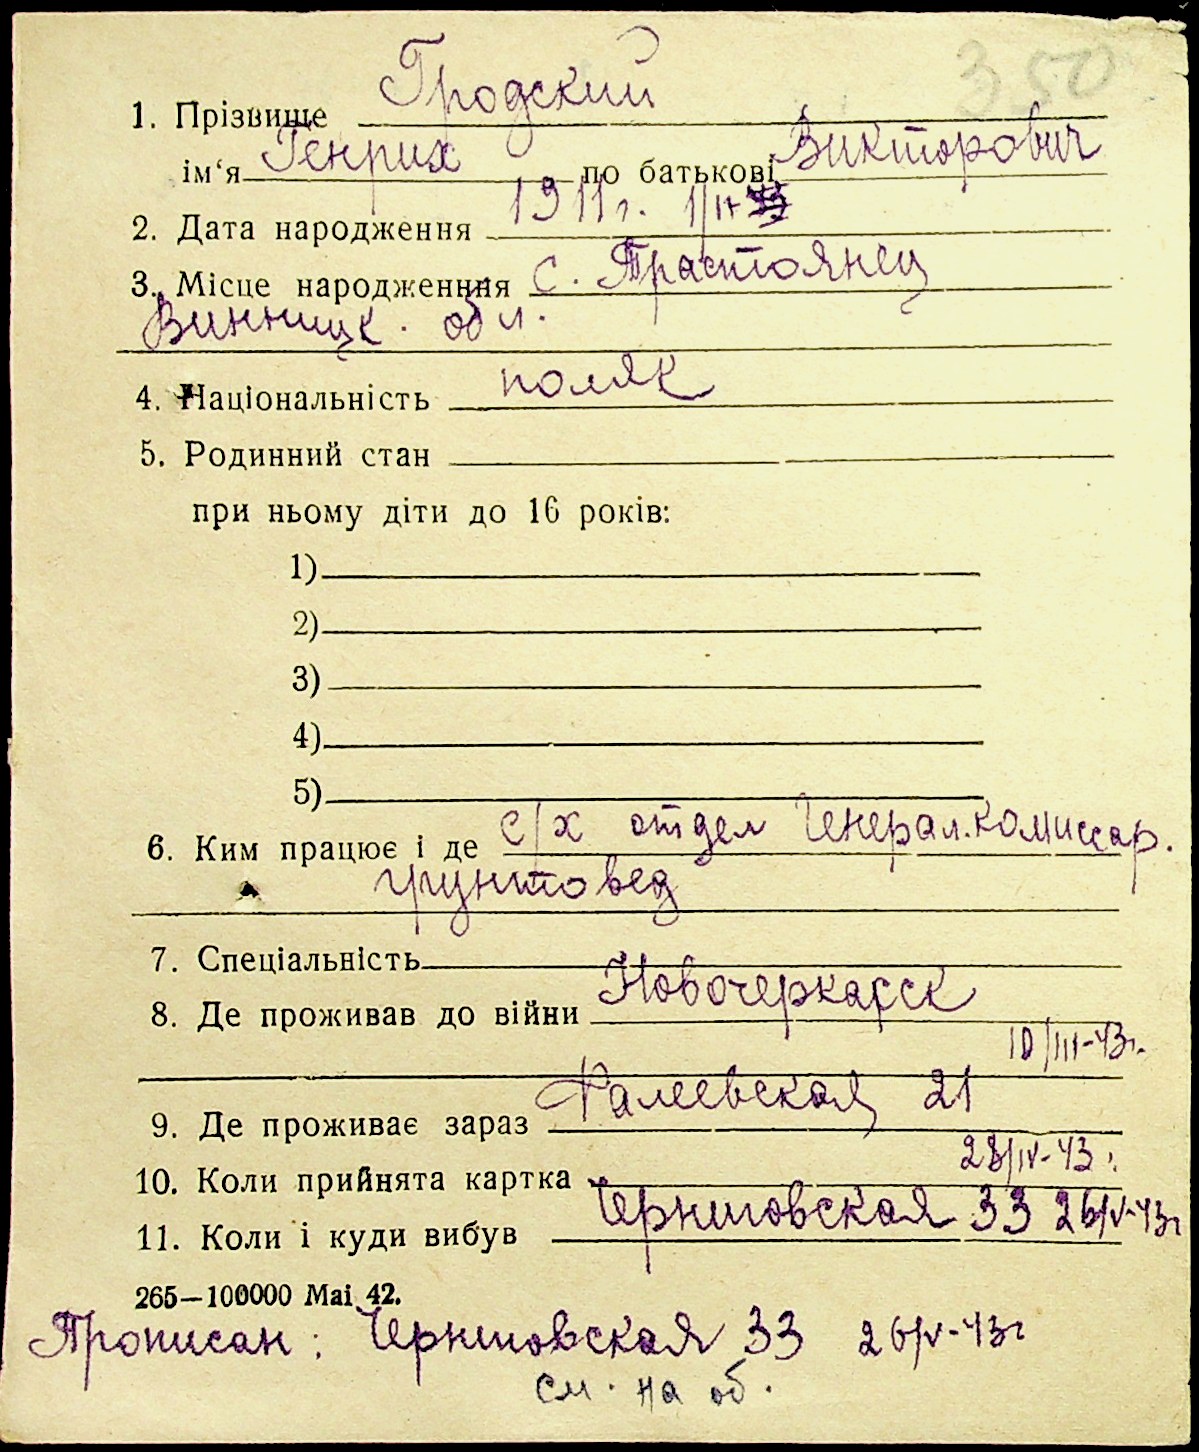 350
1. Прізвище Гродский
ім‘я Генрих по батькові Викторович
2. Дата народження 1911 г. 1/IV
3. Місце народженння с. Трастоянец
Винницк. обл.
4. Національність поляк
5. Родинний стан
при ньому діти до 16 років:
1)
2)
3)
4)
5)
6. Ким працює і де с/х отдел Генерал.комиссар.
грунтовед
7. Спеціальність
8. Де проживав до війни Новочеркасск
10/III-43г.
9. Де проживає зараз Фалеевская 21
10. Коли прийнята картка 28/IV-43г.
11. Коли і куди вибув Черниговская 33 26/V-43г
265—100000 Маі 42.
Прописан: Черниговская 33 26/V-43г
см. на об.